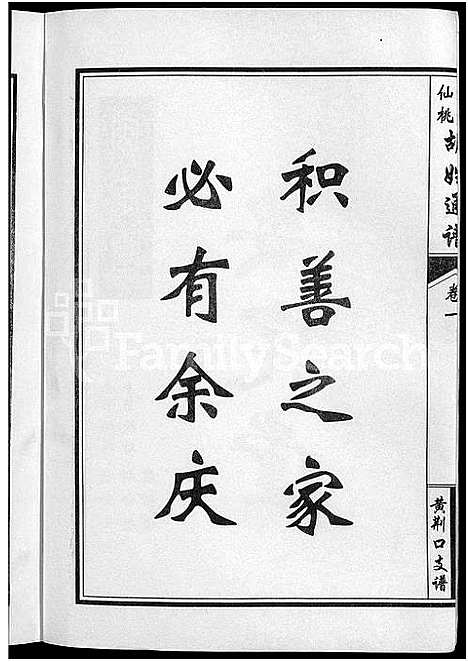 仙桃胡姓通谱
卷一
黄荆口支谱
积善之家
必有余庆
FamilySearch